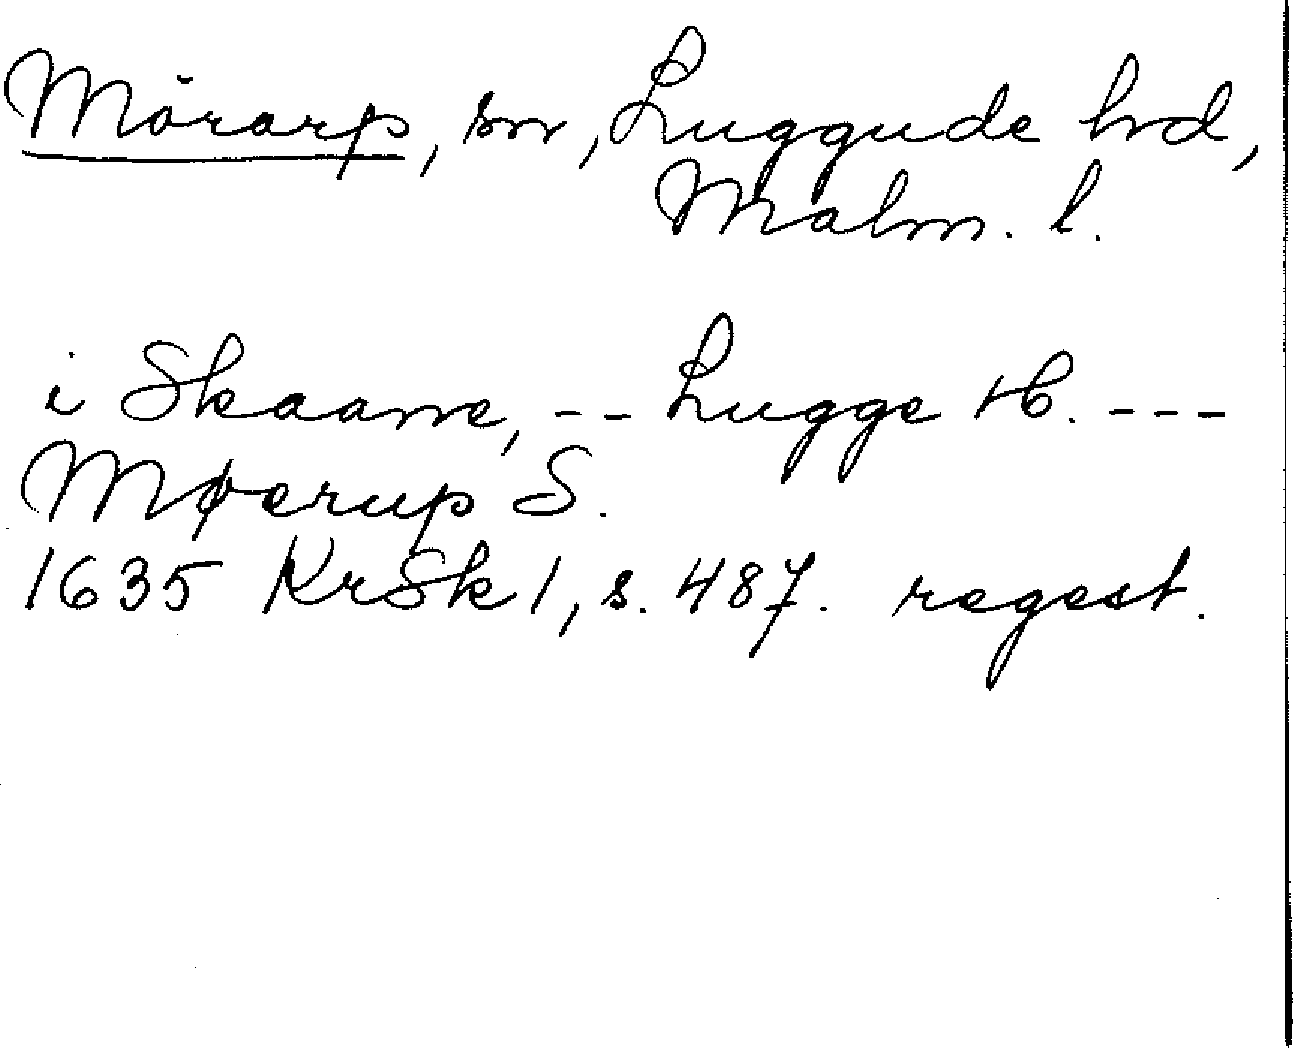 Mörarp, sn, Luggude hrd,
Malm. l.
i Skaane, -- Lugge H. ---
Møerup S.
1635 KrSk 1, s. 487. regest.